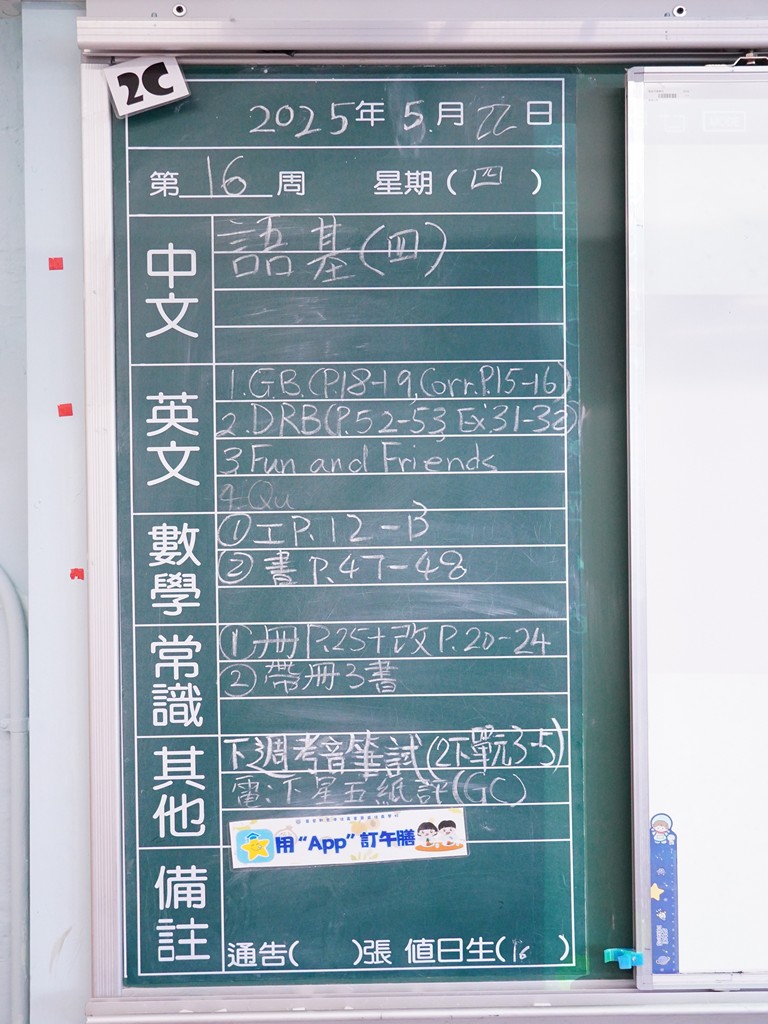 2C
2025年5月22日
第16周 星期(四)
中文
語基(四)
英文
1.G.B.(P.18-19,Corr.P.15-16)
2.DRB(P.52-53, Ex.31-32)
3 Fun and Friends
4.Qu
數學
①工P.12-13
②書P.47-48
常識
①冊P.25+改P.20-24
②帶冊3書
其他
下週考音筆試(2下單元3-5)
電:下星五紙評(GC)
用“App”訂午膳
備註
通告( )張 值日生(16 )